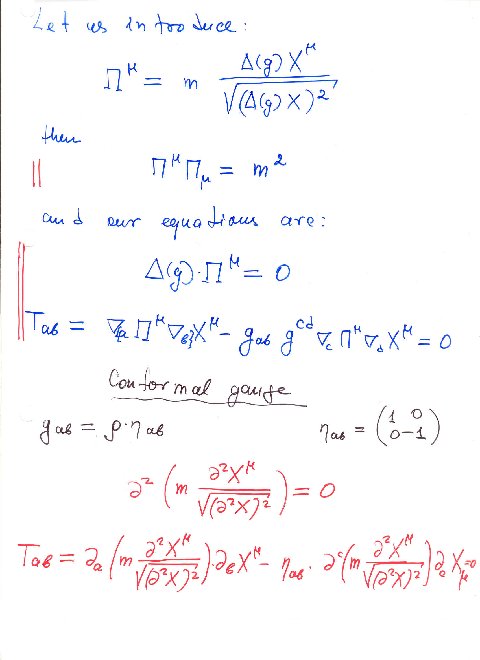 Let us introduce:
Π^μ = m Δ(g)X^μ / √(Δ(g)X)²
then
Π^μ Π_μ = m²
and our equations are:
Δ(g)·Π^μ = 0
T_ab = ∇_{a Π^μ ∇_b} X^μ − g_ab g^cd ∇_c Π^μ ∇_d X^μ = 0
Conformal gauge
g_ab = ρ·η_ab η_ab = (1 0 0 −1)
∂² (m ∂²X^μ / √(∂²X)²) = 0
T_ab = ∂_a (m ∂²X^μ / √(∂²X)²)·∂_b X^μ − η_ab · ∂^c (m ∂²X^μ / √(∂²X)²) ∂_c X_μ = 0